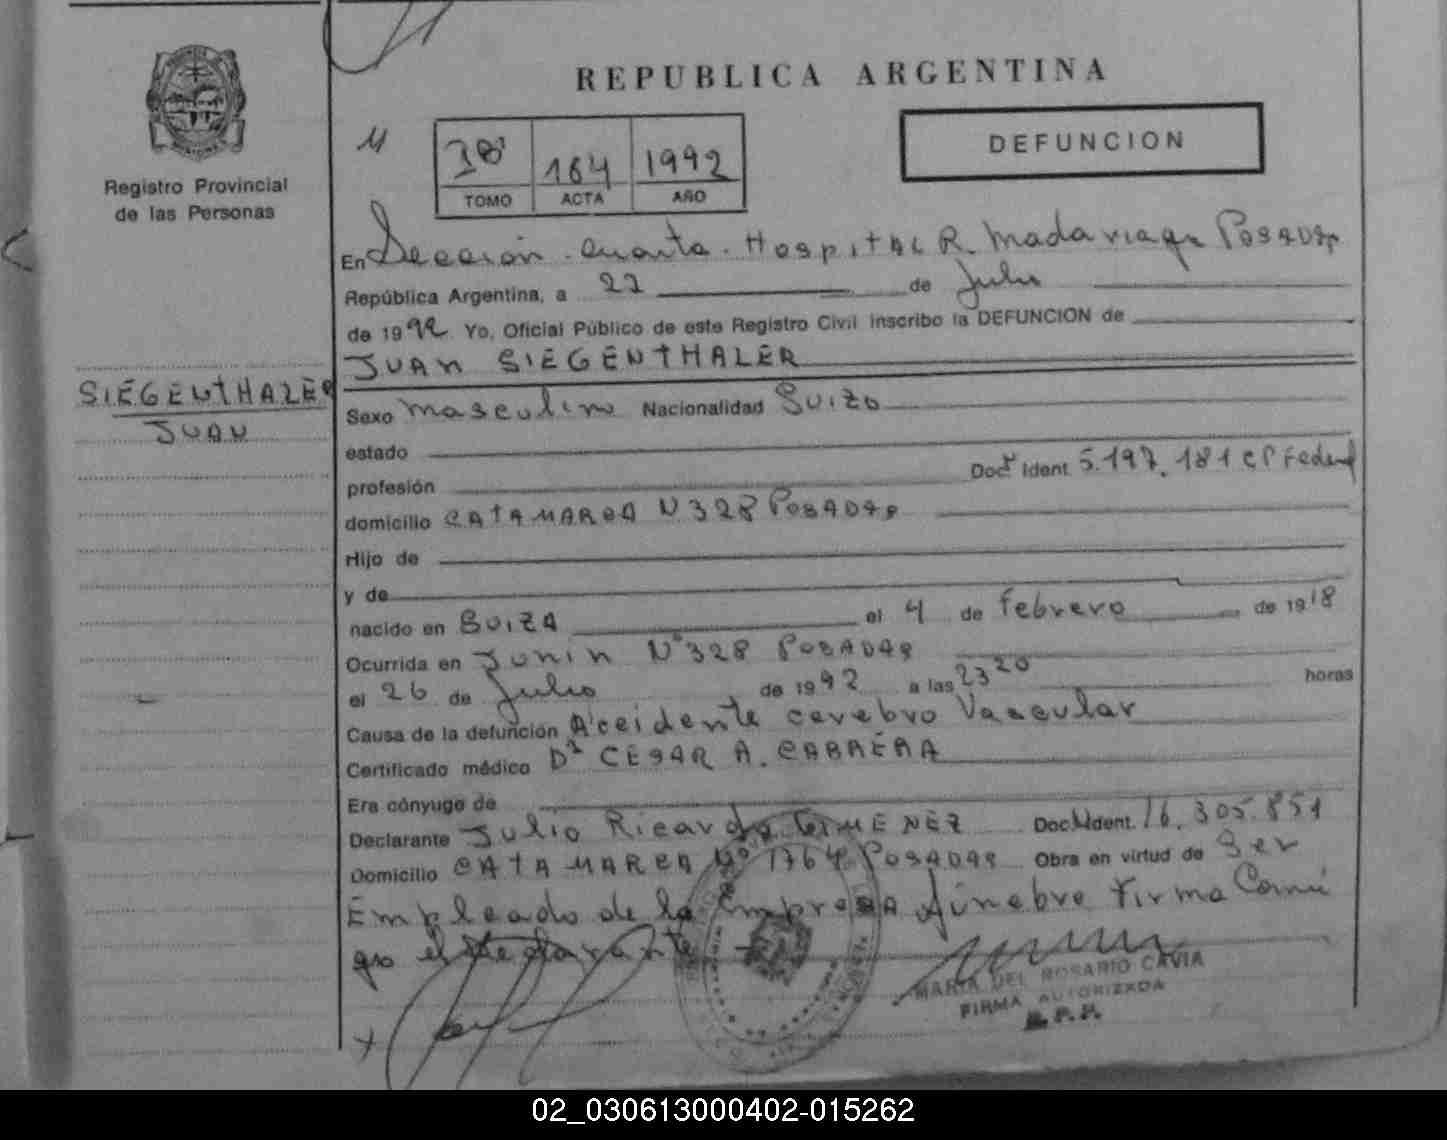 REPUBLICA ARGENTINA
DEFUNCION
Registro Provincial
de las Personas
164 1992
TOMO ACTA AÑO
En Sección Cuarta. Hospital R. Madariaga Posadas
República Argentina, a 27 de Julio
de 1992 Yo, Oficial Público de este Registro Civil inscribo la DEFUNCION de
JUAN SIEGENTHALER
SIEGENTHALER
JUAN
Sexo masculino Nacionalidad Suizo
estado
profesión Doc. Ident. 5.197.181 CP Federal
domicilio CATAMARCA N 328 POSADAS
Hijo de
y de
nacido en SUIZA el 4 de Febrero de 1918
Ocurrida en Junin Nº 328 POSADAS
el 26 de Julio de 1992 a las 23 20 horas
Causa de la defunción Accidente cerebro Vascular
Certificado médico Dr CESAR A. CABRERA
Era cónyuge de
Declarante Julio Ricardo GIMENEZ Doc. Ident. 16.305.851
Domicilio CATAMARCA Nº 1764 POSADAS Obra en virtud de Ser
Empleado de la Empresa fúnebre Firma Conmi
go el declarante
MARIA DEL ROSARIO CAVIA
FIRMA AUTORIZADA
R.P.P.
02_030613000402-015262